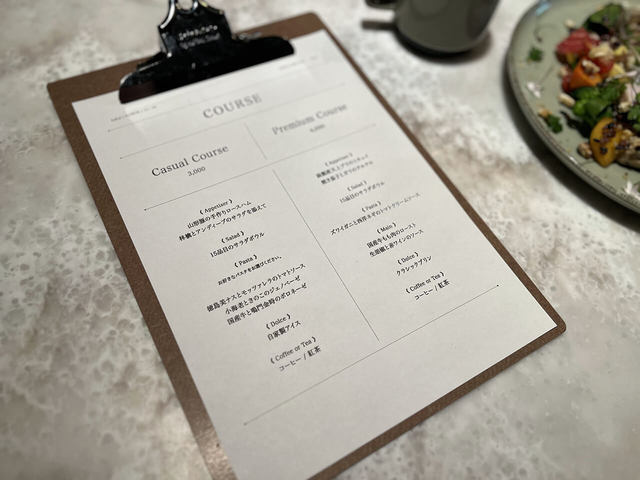 COURSE
Casual Course
3,000
( Appetizer )
山形豚の手作りロースハム
林檎とアンディーブのサラダを添えて
( Salad )
15品目のサラダボウル
( Pasta )
お好きなパスタをお選びください。
徳島美ナスとモッツァレラのトマトソース
小海老ときのこのジェノベーゼ
国産牛と鳴門金時のボロネーゼ
( Dolce )
自家製アイス
( Coffee or Tea )
コーヒー / 紅茶
Premium Course
( Appetizer )
( Salad )
15品目のサラダボウル
( Pasta )
ズワイガニと西洋ネギのトマトクリームソース
( Main )
国産牛もも肉のロースト
生胡椒と赤ワインのソース
( Dolce )
クラシックプリン
( Coffee or Tea )
コーヒー / 紅茶